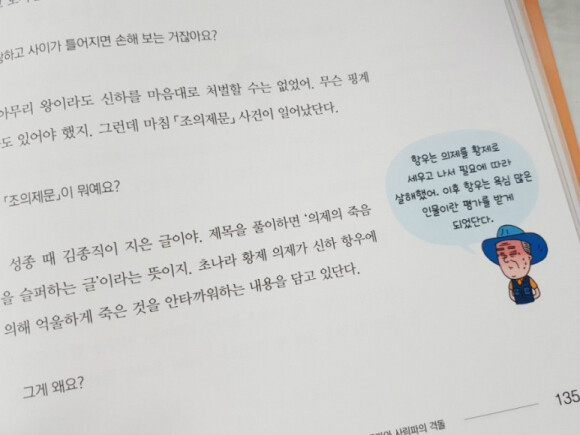 하고 사이가 틀어지면 손해 보는 거잖아요?
아무리 왕이라도 신하를 마음대로 처벌할 수는 없었어. 무슨 핑계
도 있어야 했지. 그런데 마침 「조의제문」 사건이 일어났단다.
「조의제문」이 뭐예요?
성종 때 김종직이 지은 글이야. 제목을 풀이하면 '의제의 죽음
을 슬퍼하는 글'이라는 뜻이지. 초나라 황제 의제가 신하 항우에
의해 억울하게 죽은 것을 안타까워하는 내용을 담고 있단다.
그게 왜요?
항우는 의제를 황제로
세우고 나서 필요에 따라
살해했어. 이후 항우는 욕심 많은
인물이란 평가를 받게
되었단다.
사림파의 격돌
135